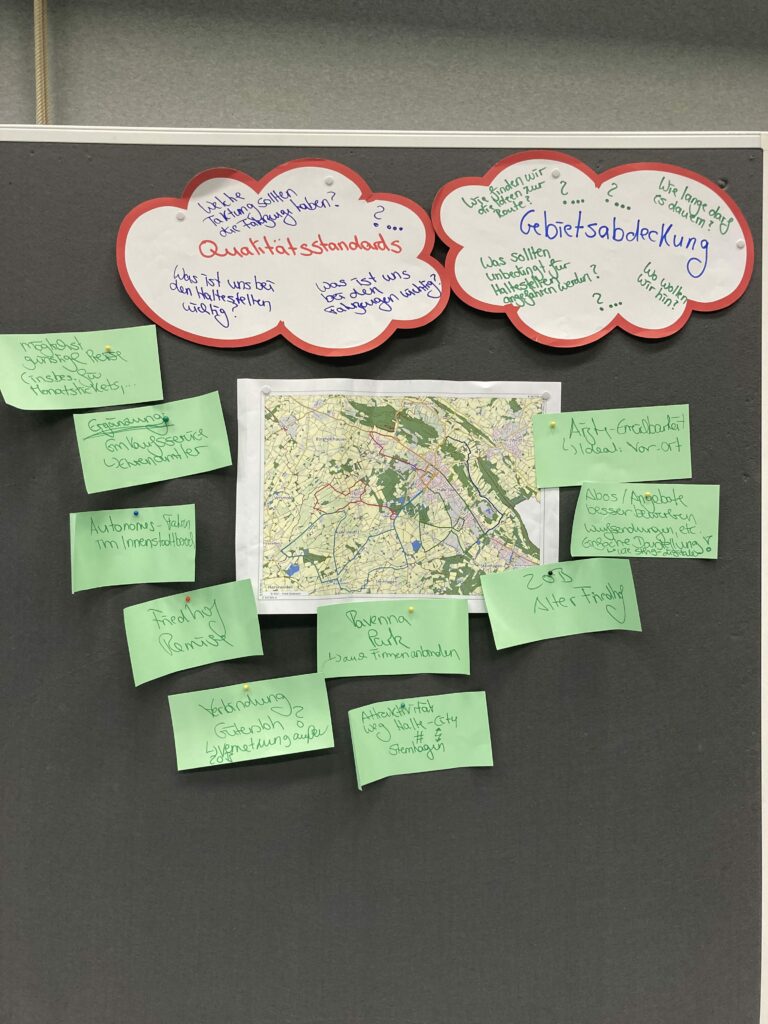 Welche
Taktung sollten
die Fahrzeuge haben?
? ....
Qualitätsstandards
Was ist uns bei
den Haltestellen
wichtig?
Was ist uns
bei den
Fahrzeugen wichtig?
Wie finden wir
die Ideen zur
Route?
? ....
? ...
Wie lange darf
es dauern?
Gebietsabdeckung
Was sollten
unbedingt für
Haltestellen
angefahren werden?
Wo wollen
wir hin?
? ...
Möglichst
günstige Preise
(insbes. für
Monatstickets, ...
Ergänzung:
Einkaufsservice
↳ Ehrenämtler
Autonomes-Fahren
im Innenstadtbereich
Friedhof
Remise
Verbindung
Gütersloh ?
↳ Vernetzung außer
ZOB
Ravenna
Park
↳ auch Firmen anbinden
Attraktivität
Weg Halle-City
#
Steinhagen
Ärzte-Erreichbarkeit
↳ Ideal: Vor-Ort
Abos/Angebote
besser bewerben
Wurfsendungen, etc.
Einfache Darstellung!
ZOB
Alter Friedhof